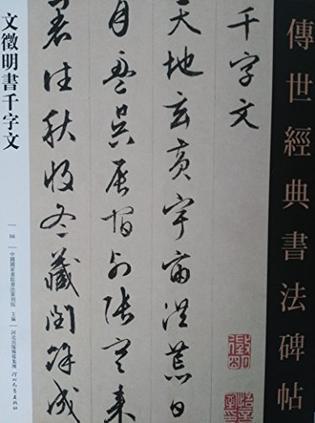 傳世經典書法碑帖
千字文
天地玄黃宇宙洪荒日
月盈昃辰宿列張寒來
暑往秋收冬藏閏餘成
文徵明書千字文
主編
河北出版傳媒集團